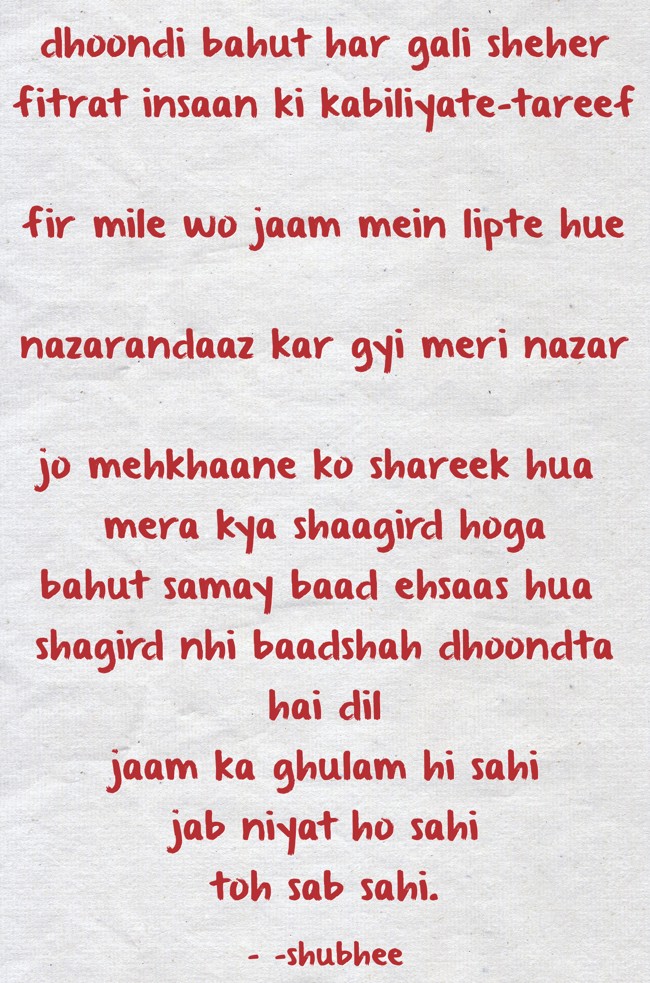 dhoondi bahut har gali sheher
fitrat insaan ki kabiliyate-tareef
fir mile wo jaam mein lipte hue
nazarandaaz kar gyi meri nazar
jo mehkhaane ko shareek hua
mera kya shaagird hoga
bahut samay baad ehsaas hua
shagird nhi baadshah dhoondta
hai dil
jaam ka ghulam hi sahi
jab niyat ho sahi
toh sab sahi.
- -shubhee